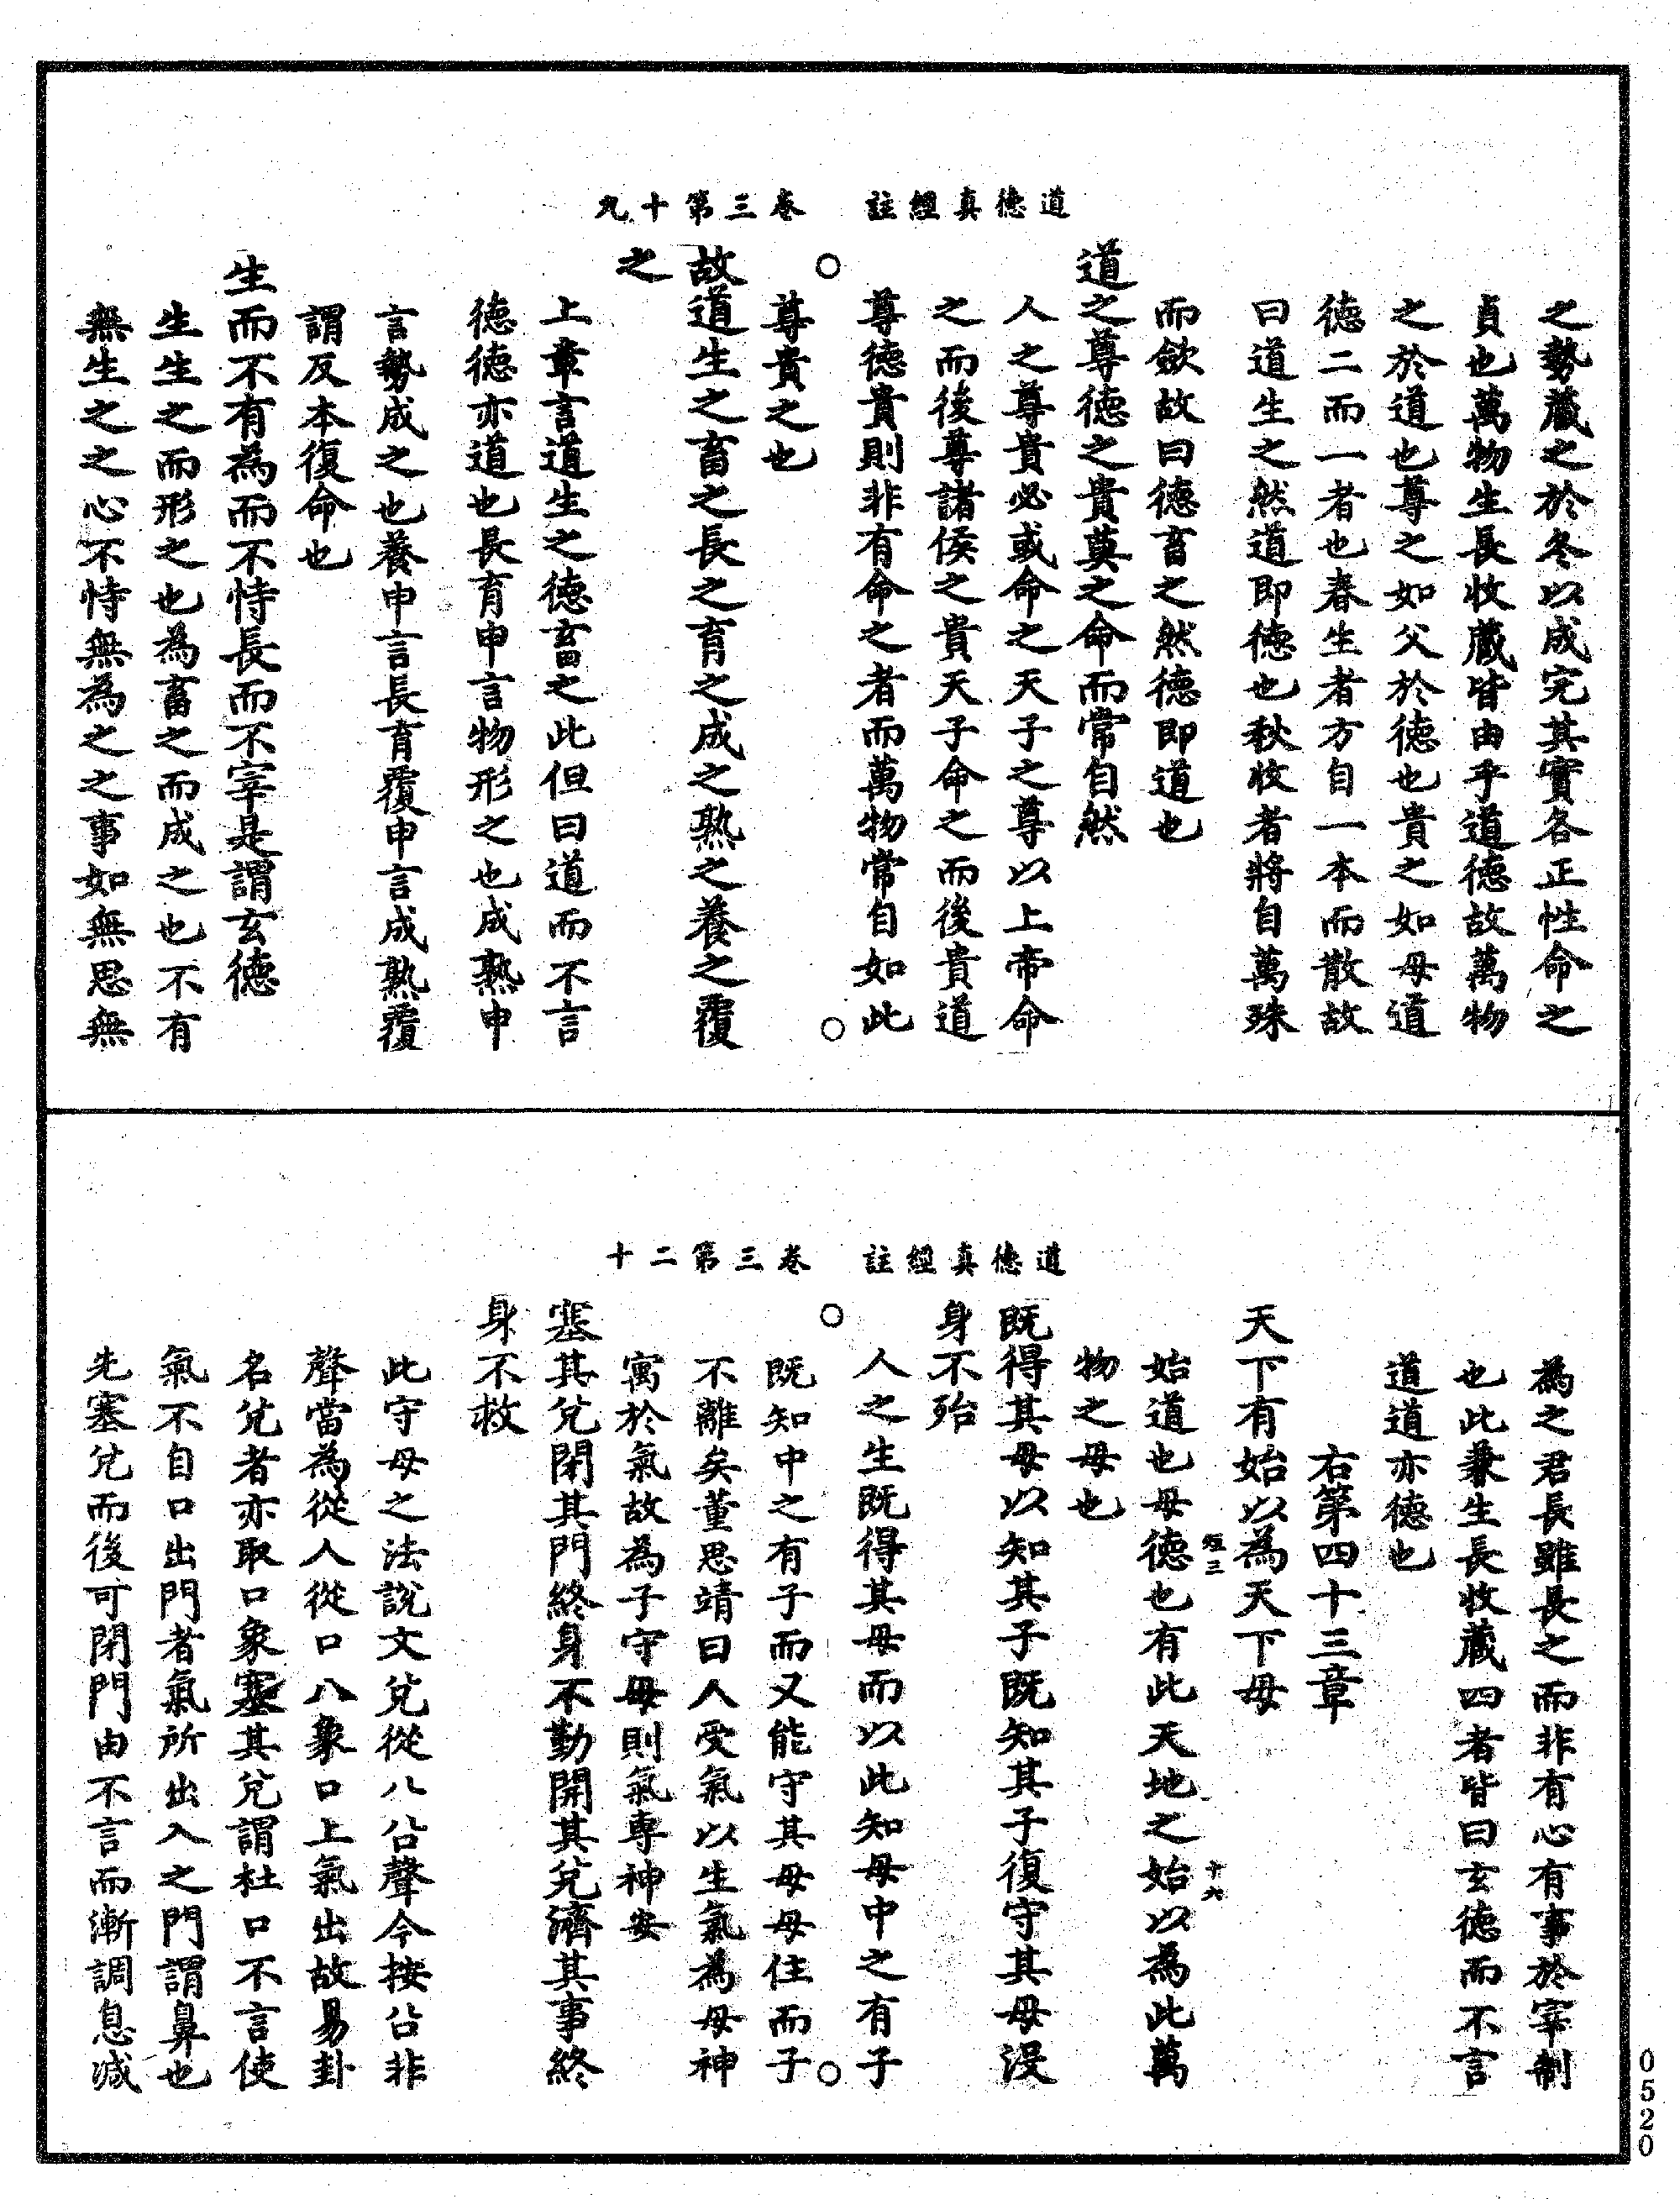 道德真經註　卷三第十九
之勢藏之於冬以成完其實各正性命之
貞也萬物生長收藏皆由乎道德故萬物
之於道也尊之如父於德也貴之如母道
德二而一者也春生者方自一本而散故
曰道生之然道即德也秋收者將自萬殊
而歛故曰德畜之然德即道也
道之尊德之貴莫之命而常自然
人之尊貴必或命之天子之尊以上帝命
之而後尊諸侯之貴天子命之而後貴道
尊德貴則非有命之者而萬物常自如此
尊貴之也
故道生之畜之長之育之成之熟之養之覆
之
上章言道生之德畜之此但曰道而不言
德德亦道也長育申言物形之也成熟申
言勢成之也養申言長育覆申言成熟覆
謂反本復命也
生而不有為而不恃長而不宰是謂玄德
生生之而形之也為畜之而成之也不有
無生之之心不恃無為之之事如無思無
道德真經註　卷三第二十
為之君長雖長之而非有心有事於宰制
也此兼生長收藏四者皆曰玄德而不言
道道亦德也
右第四十三章
天下有始以為天下母
始道也母德也有此天地之始以為此萬
物之母也
經三　十六
既得其母以知其子既知其子復守其母沒
身不殆
人之生既得其母而以此知母中之有子
既知中之有子而又能守其母母住而子
不離矣董思靖曰人受氣以生氣為母神
寓於氣故為子守母則氣專神安
塞其兌閉其門終身不勤開其兌濟其事終
身不救
此守母之法說文兌從八㕣聲今按㕣非
聲當為從人從口八象口上氣出故易卦
名兌者亦取口象塞其兌謂杜口不言使
氣不自口出門者氣所出入之門謂鼻也
先塞兌而後可閉門由不言而漸調息減
0520